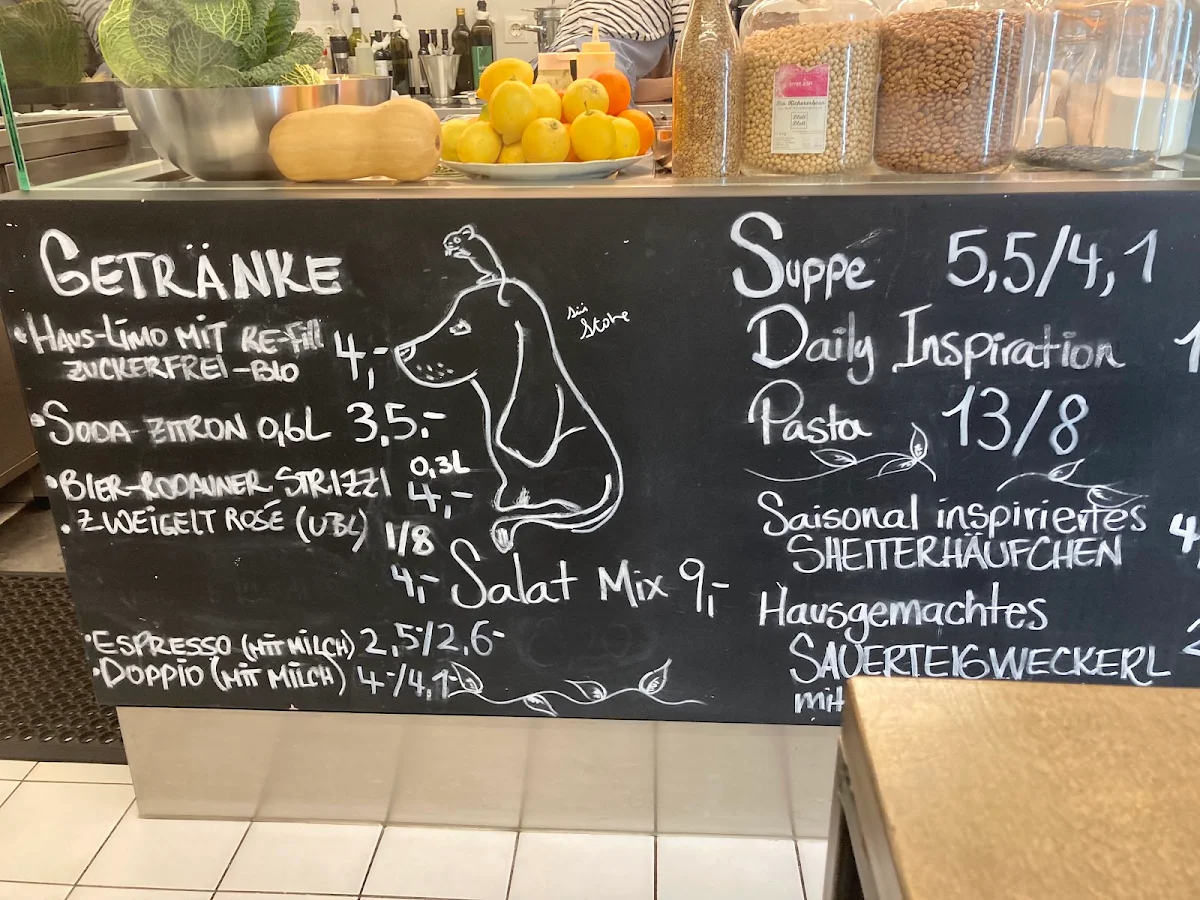 GETRÄNKE
• HAUS-LIMO MIT RE-Fill
ZUCKERFREI-BIO 4,-
• SODA-ZITRON 0,6L 3,5.-
• BIER-RODAUNER STRIZZI 0,3L 4,-
• ZWEIGELT ROSÉ (UBL) 1/8
4,-
• ESPRESSO (MIT MILCH) 2,5-/2,6-
• DOPPIO (MIT MILCH) 4-/4,1-
Salat Mix 9,-
Suppe 5,5/4,1
Daily Inspiration 1
Pasta 13/8
Saisonal inspiriertes
SHEITERHÄUFCHEN 4
Hausgemachtes
SAUERTEIGWECKERL 2
mit